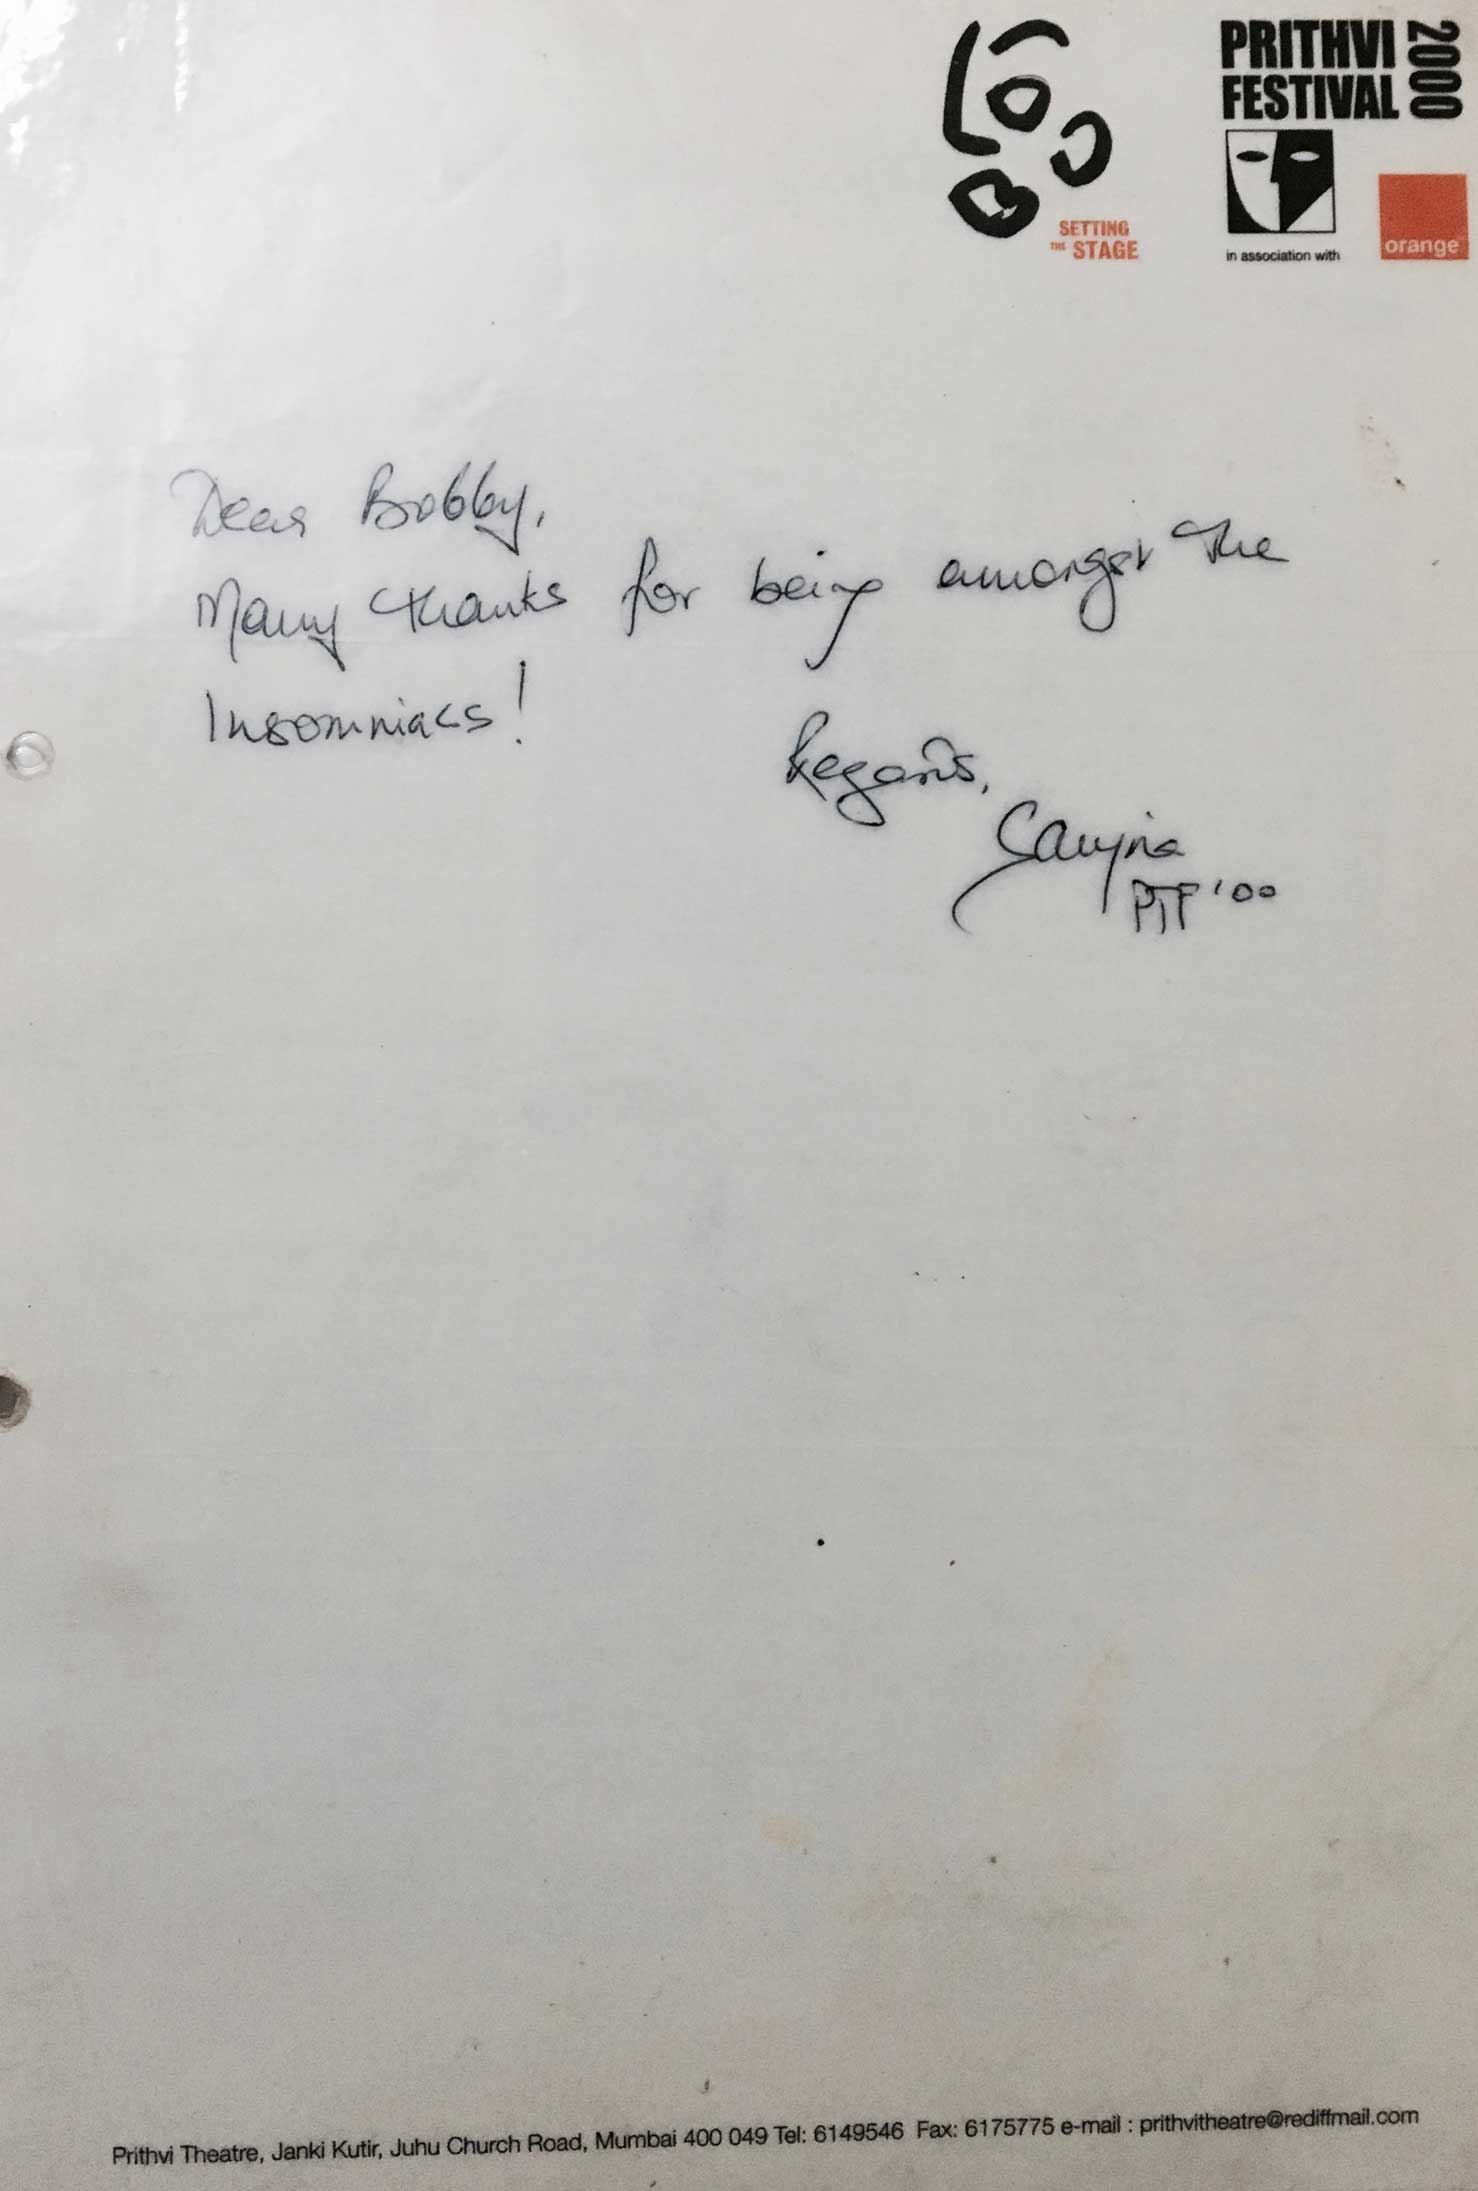 PRITHVI FESTIVAL 2000
SETTING THE STAGE
in association with
orange
Dear Bobby,
Many thanks for being amongst the
Insomniacs!
Regards,
Sanjna
PTF '00
Prithvi Theatre, Janki Kutir, Juhu Church Road, Mumbai 400 049 Tel: 6149546 Fax: 6175775 e-mail : prithvitheatre@rediffmail.com